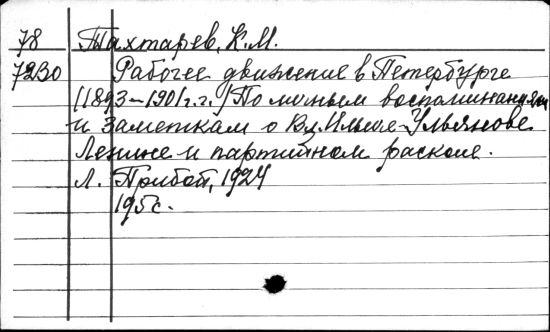 78 Тахтарев, К.М.
7230 Рабочее движение в Петербурге
(1893-1901г.г.) По личным воспоминаниям
и заметкам о Вл. Ильиче Ульянове
Ленине и партийном расколе.
Л. Прибой, 1924
195с.